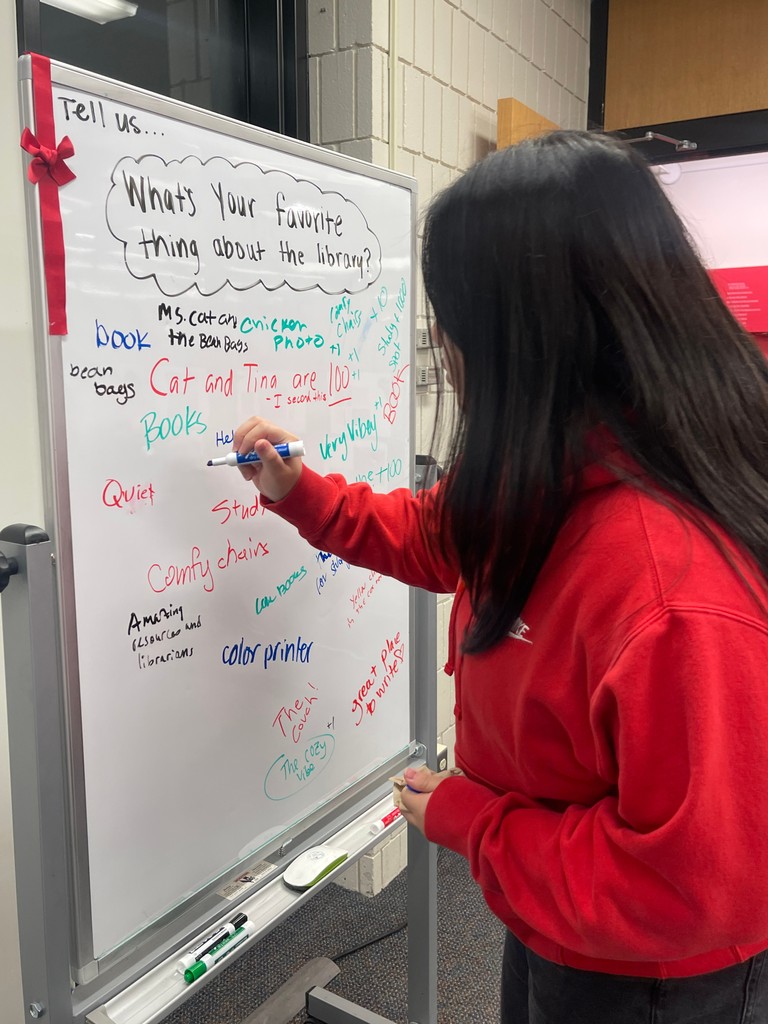 Tell us...
What's Your favorite
thing about the library?
Ms. Cat and
the Bean Bags
book
chicken
Photo
+1
comfy
chairs
+1
+1
+10
Study +1000
spot
bean
bags
Cat and Tina are 100
- I second this
BOOK
Books
Hel
very Vibey +1
+100
Quiet
Stud
Comfy chairs
Law Books
Amazing
resources and
librarians
color printer
great place
to write
The
Couch!
+1
The cozy
vibe